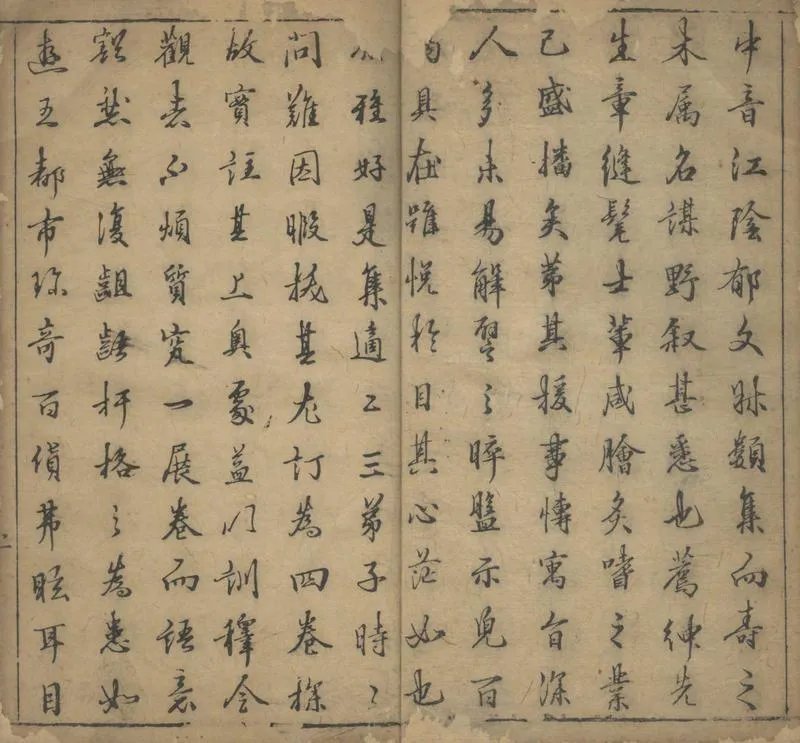 中音江陰郁文叔類集而壽之
未属名謀野叙甚悉也薦紳先
生章縫髦士輩咸膾炙嗜之業
已盛播矣苐其援事慱寓旨深
人多未易解譬之晬盤示兒百
具在雖悅於目其心茫如也
雅好是集適二三弟子時〻
問難因暇挑其尤訂為四卷採
故實註其上奥處益以訓釋令
觀者不煩質究一展卷而語意
豁然無復齟齬扞格之為患如
遊五都市珎奇百貨弗眩耳目